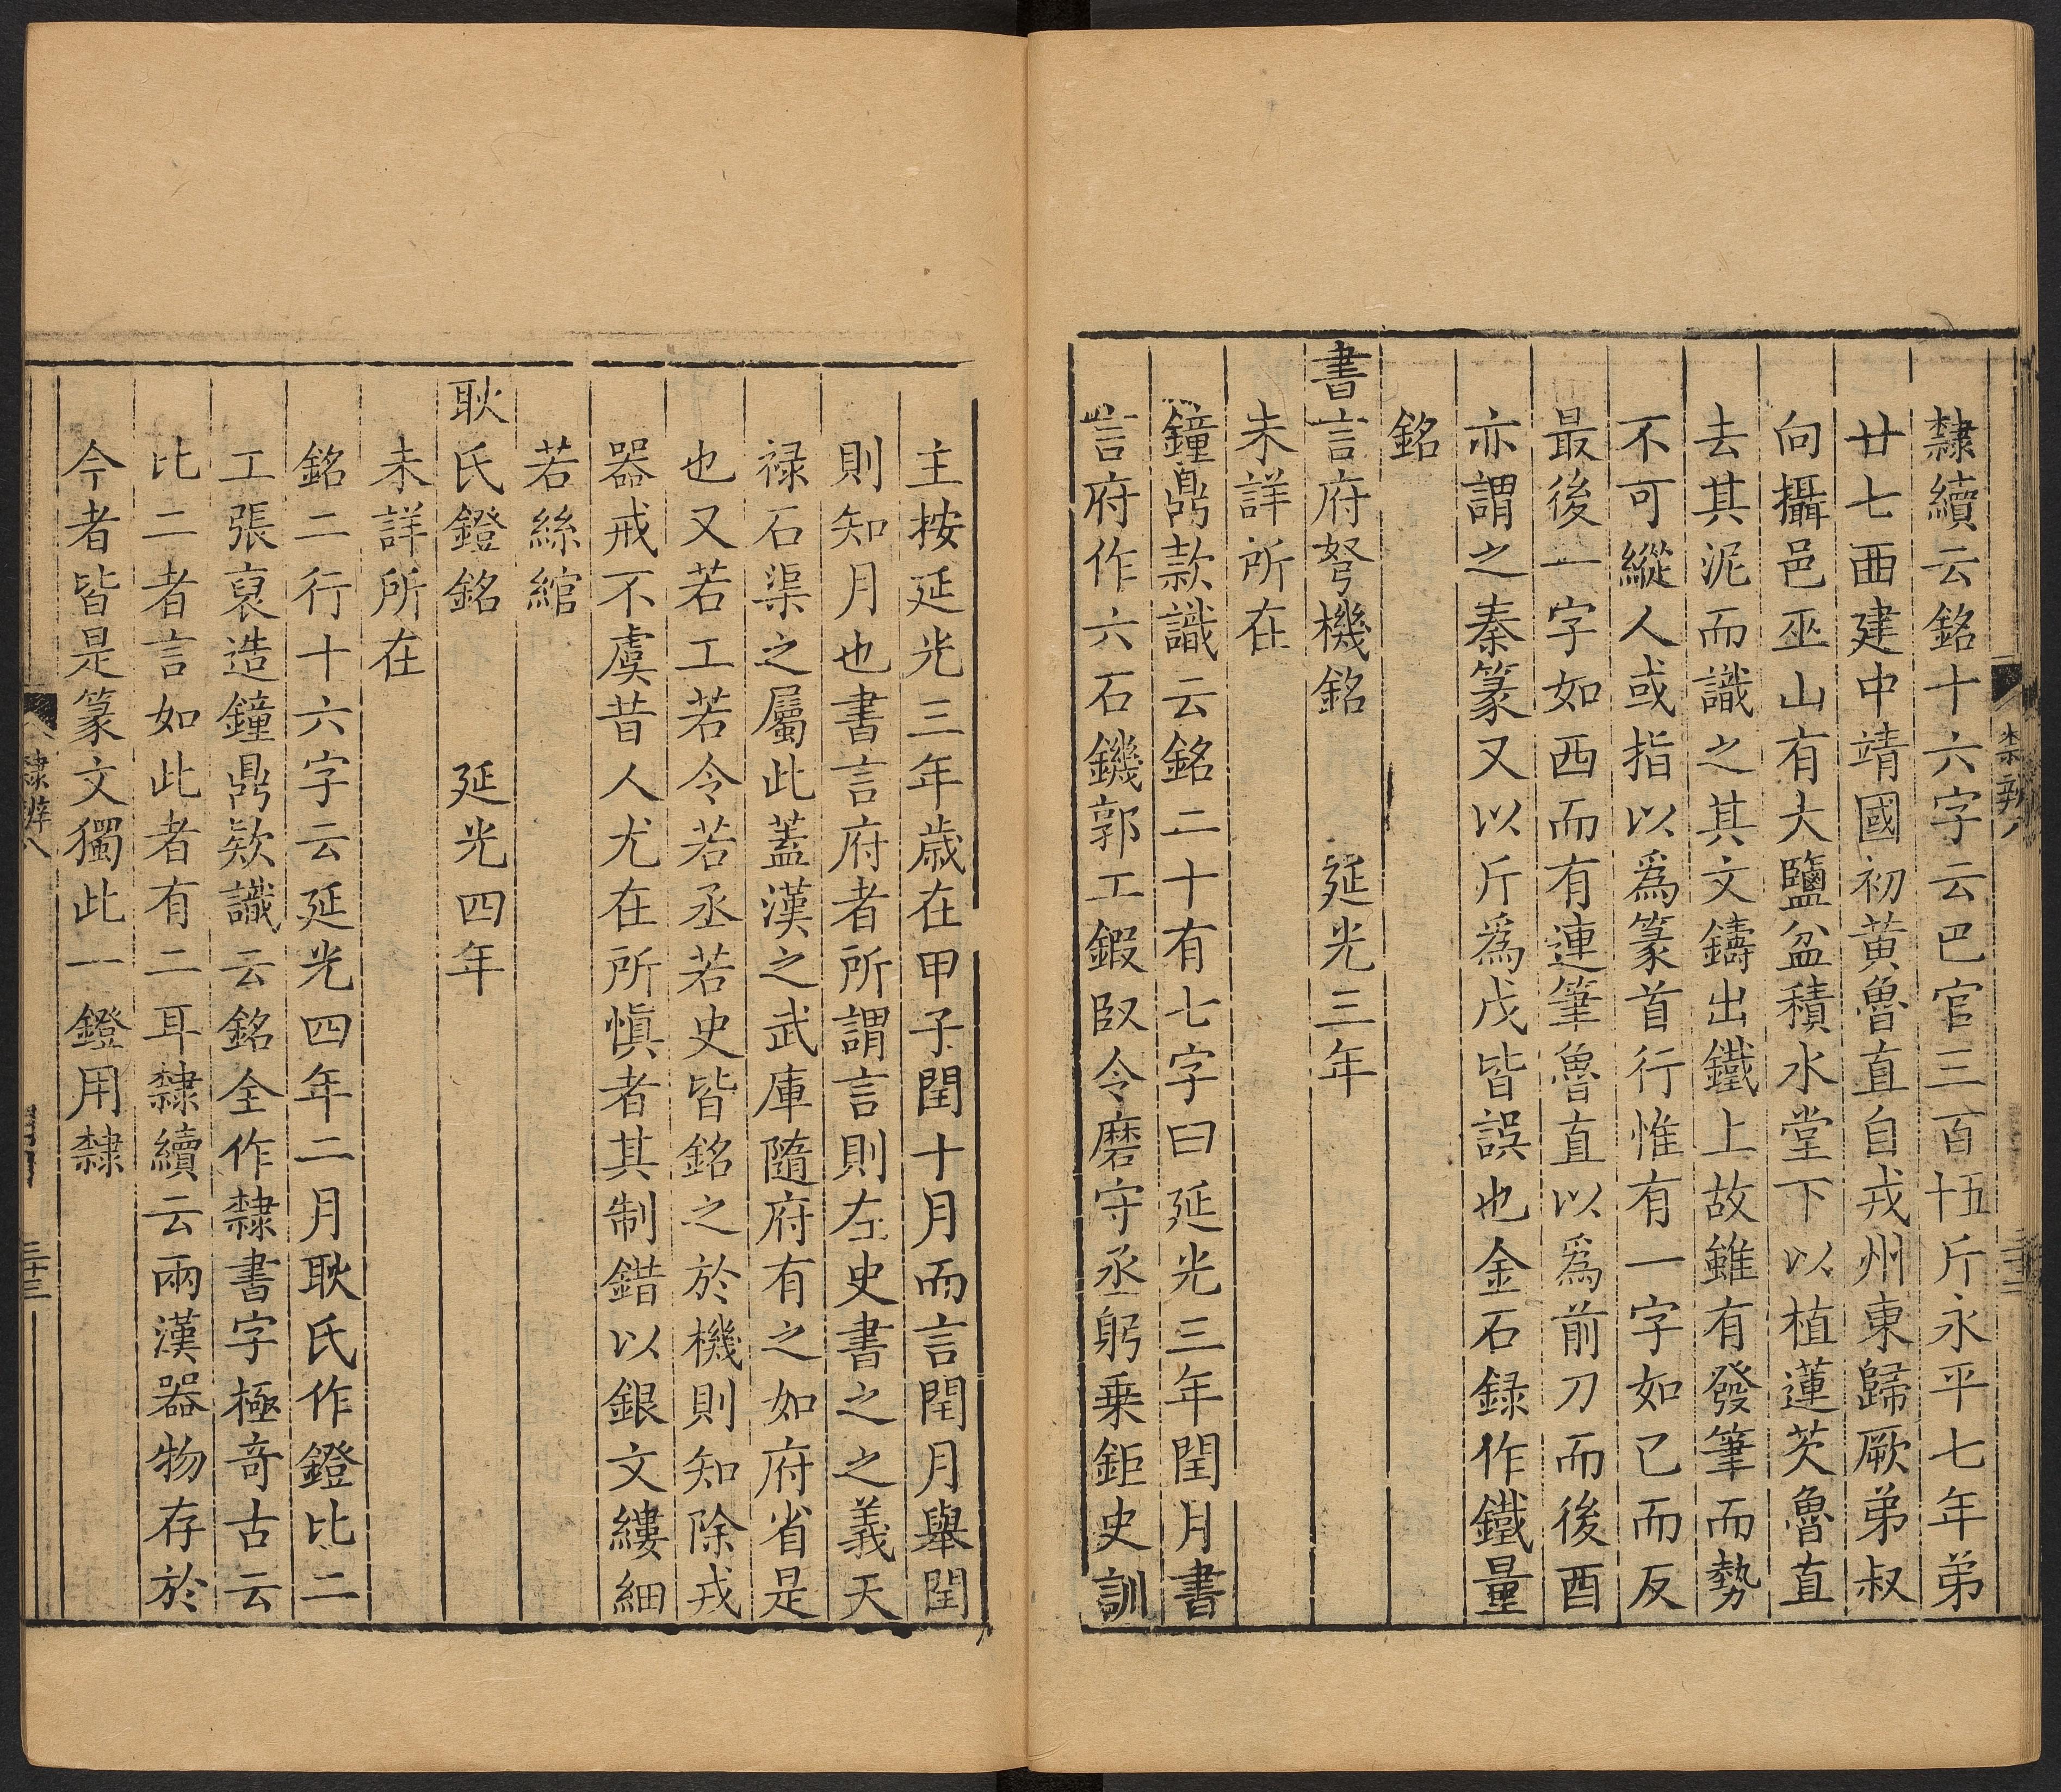 隸續云銘十六字云巴官三百五十斤永平七年弟
廿七酉建中靖國初黄魯直自戎州東歸厥弟叔
向攝邑巫山有大鹽盆積水堂下以植蓮芡魯直
去其泥而識之其文鑄出鐵上故雖有發筆而勢
不可縱人或指以爲篆首行惟有一字如已而反
最後一字如西而有連筆魯直以爲前刀而後酉
亦謂之秦篆又以斤爲戊皆誤也金石録作鐵量
銘
書言府弩機銘　延光三年
未詳所在
鐘鼎款識云銘二十有七字曰延光三年閏月書
言府作六石鐖郭工鍜㕜令磨守丞躬乗鉅史訓
主按延光三年歳在甲子閏十月而言閏月舉閏
則知月也書言府者所謂言則左史書之之義天
禄石渠之屬此蓋漢之武庫隨府有之如府省是
也又若工若令若丞若史皆銘之於機則知除戎
器戒不虞昔人尤在所愼者其制錯以銀文縷細
若絲綰
耿氏鐙銘　延光四年
未詳所在
銘二行十六字云延光四年二月耿氏作鐙比二
工張裒造鐘鼎欵識云銘全作隸書字極奇古云
比二者言如此者有二耳隸續云兩漢器物存於
今者皆是篆文獨此一鐙用隸
隸辨八
三十三